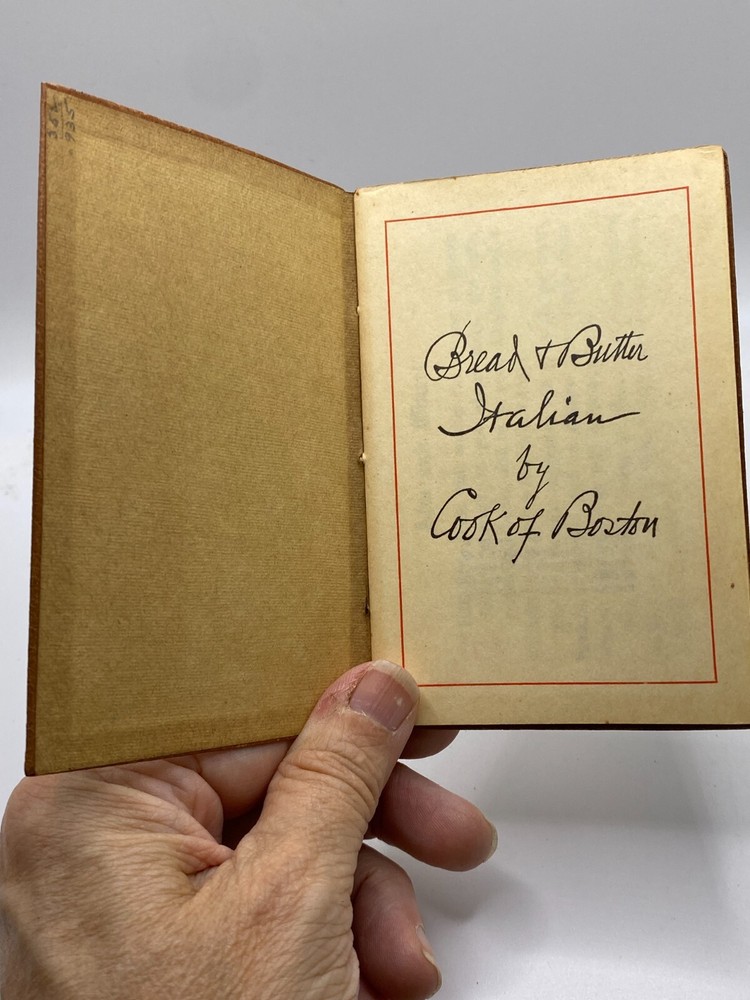 Bread & Butter
Italian
by
Cook of Boston